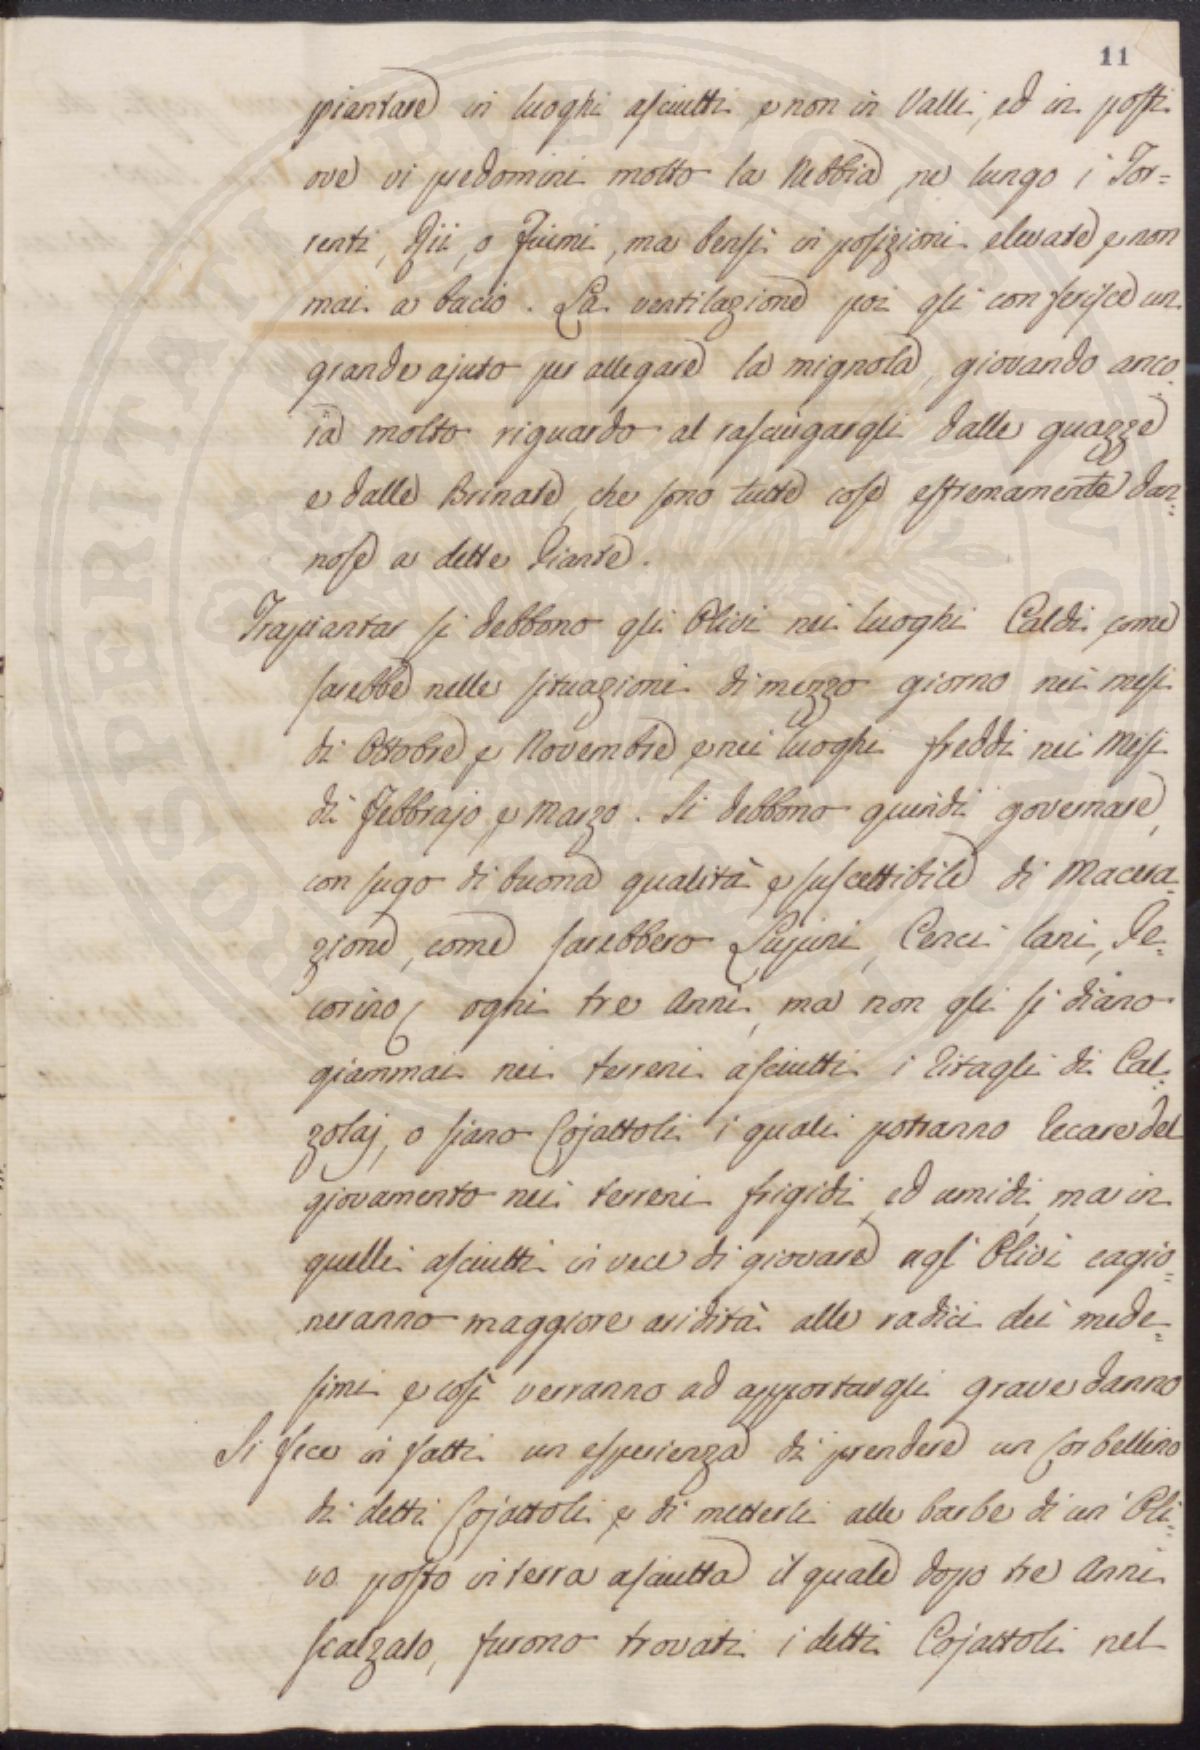 11
piantare in luoghi asciutti, e non in Valli, ed in posti
ove vi predomini molto la Nebbia, ne lungo i Tor=
renti, Rii, o Fiumi, ma bensì in posizioni elevate e non
mai a bacio. La ventilazione poi gli conferisce un
grande ajuto per allegare la mignola, giovando anco=
ra molto riguardo al rasciugargli dalle guazze
e dalle Brinate, che sono tutte cose estremamente dan=
nose a dette Piante.
Trapiantar si debbono gli Olivi nei luoghi Caldi, come
sarebbe nelle situazioni di mezzo giorno nei mesi
di Ottobre, e Novembre, e nei luoghi freddi nei Mesi
di Febbrajo, e Marzo. Si debbono quindi governare,
con sugo di buona qualità, e suscettibile di Macera=
zione, come sarebbero Lupini, Cenci lani, Pe=
corino, ogni tre Anni, ma non gli si diano
giammai nei terreni asciutti i Ritagli di Cal=
zolaj, o siano Cojattoli i quali potranno recare del
giovamento nei terreni frigidi, ed umidi, ma in
quelli asciutti in vece di giovare agl' Olivi cagio=
neranno maggiore aridità alle radici dei mede=
simi, e così verranno ad apportargli grave danno
Si fece in fatti un esperienza di prendere un Corbellino
di detti Cojattoli, e di metterli alle barbe di un' Oli=
vo posto in terra asciutta il quale dopo tre Anni
scalzato, furono trovati i detti Cojattoli nel
PROSPERITATI PVBLICAE AVGENDAE